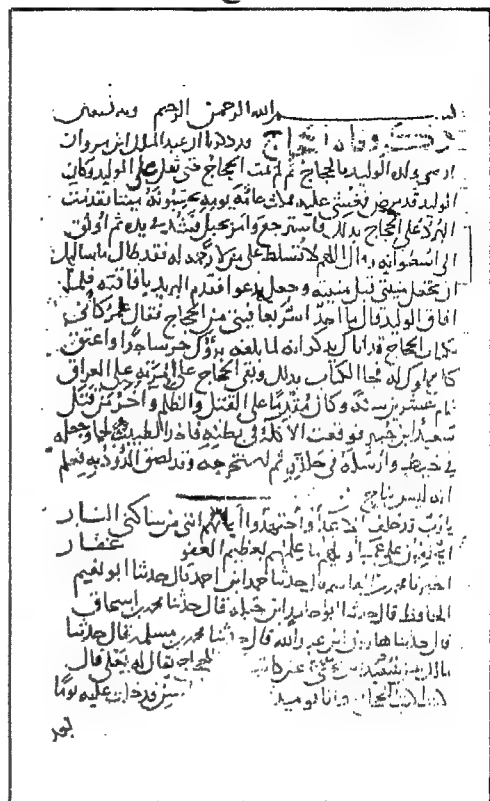 بسم الله الرحمن الرحيم وبه نستعين
وفاة الحجاج عبد الملك ابن مروان
اوصى ولده الوليد بالحجاج ثم لم يمت الحجاج حتى ثقل على الوليد وكان
الوليد قد مرض فغشي عليه فمكث عامة يومه يحسبونه ميتا فقدمت
البرد على الحجاج بذلك فاسترجع وامر بحبل فشد في يده ثم اوثق
الى اسطوانة وقال اللهم لا تسلط علي من لا رحمة له فقد طال ما سالتك
ان تجعل منيتي قبل منيته وجعل يدعوا فقدم البريد بافاقته فلما
افاق الوليد قال ما احد اسر بعافيتي من الحجاج فقال عمر كاني
بكتاب الحجاج قد اتاك يذكر انه لما بلغه برؤك خر ساجدا واعتق
كل مملوك له فجا الكتاب بذلك وبقي الحجاج على امرته على العراق
تمام عشرين سنة وكان مقدما على القتل والظلم واخر من قتل
سعيد ابن جبير فوقعت الاكلة في بطنه فاخذ الطبيب لحما وجعله
في خيط وارسله في حلقه ثم استخرجه وقد لصق الدود به فعلم
انه ليس بناج
يا رب قد حلف الاعداء واجتهدوا ايمانهم انني من ساكني النار
ايحلفون على عمياء ويلهم ما علمهم بعظيم العفو غفار
اخبرنا محمد بن ابي القاسم قال حدثنا حمد ابن احمد قال حدثنا ابو نعيم
الحافظ قال حدثنا ابو حامد ابن جبلة قال حدثنا محمد بن اسحاق
قال حدثنا هارون ابن عبد الله قال حدثنا محمد بن مسلمة قال حدثنا
مالك عن يحيى بن سعيد عن كاتب الحجاج يقال له يعلى قال
كنت اكتب للحجاج وانا يومئذ السن فدخلت عليه يوما
بعد